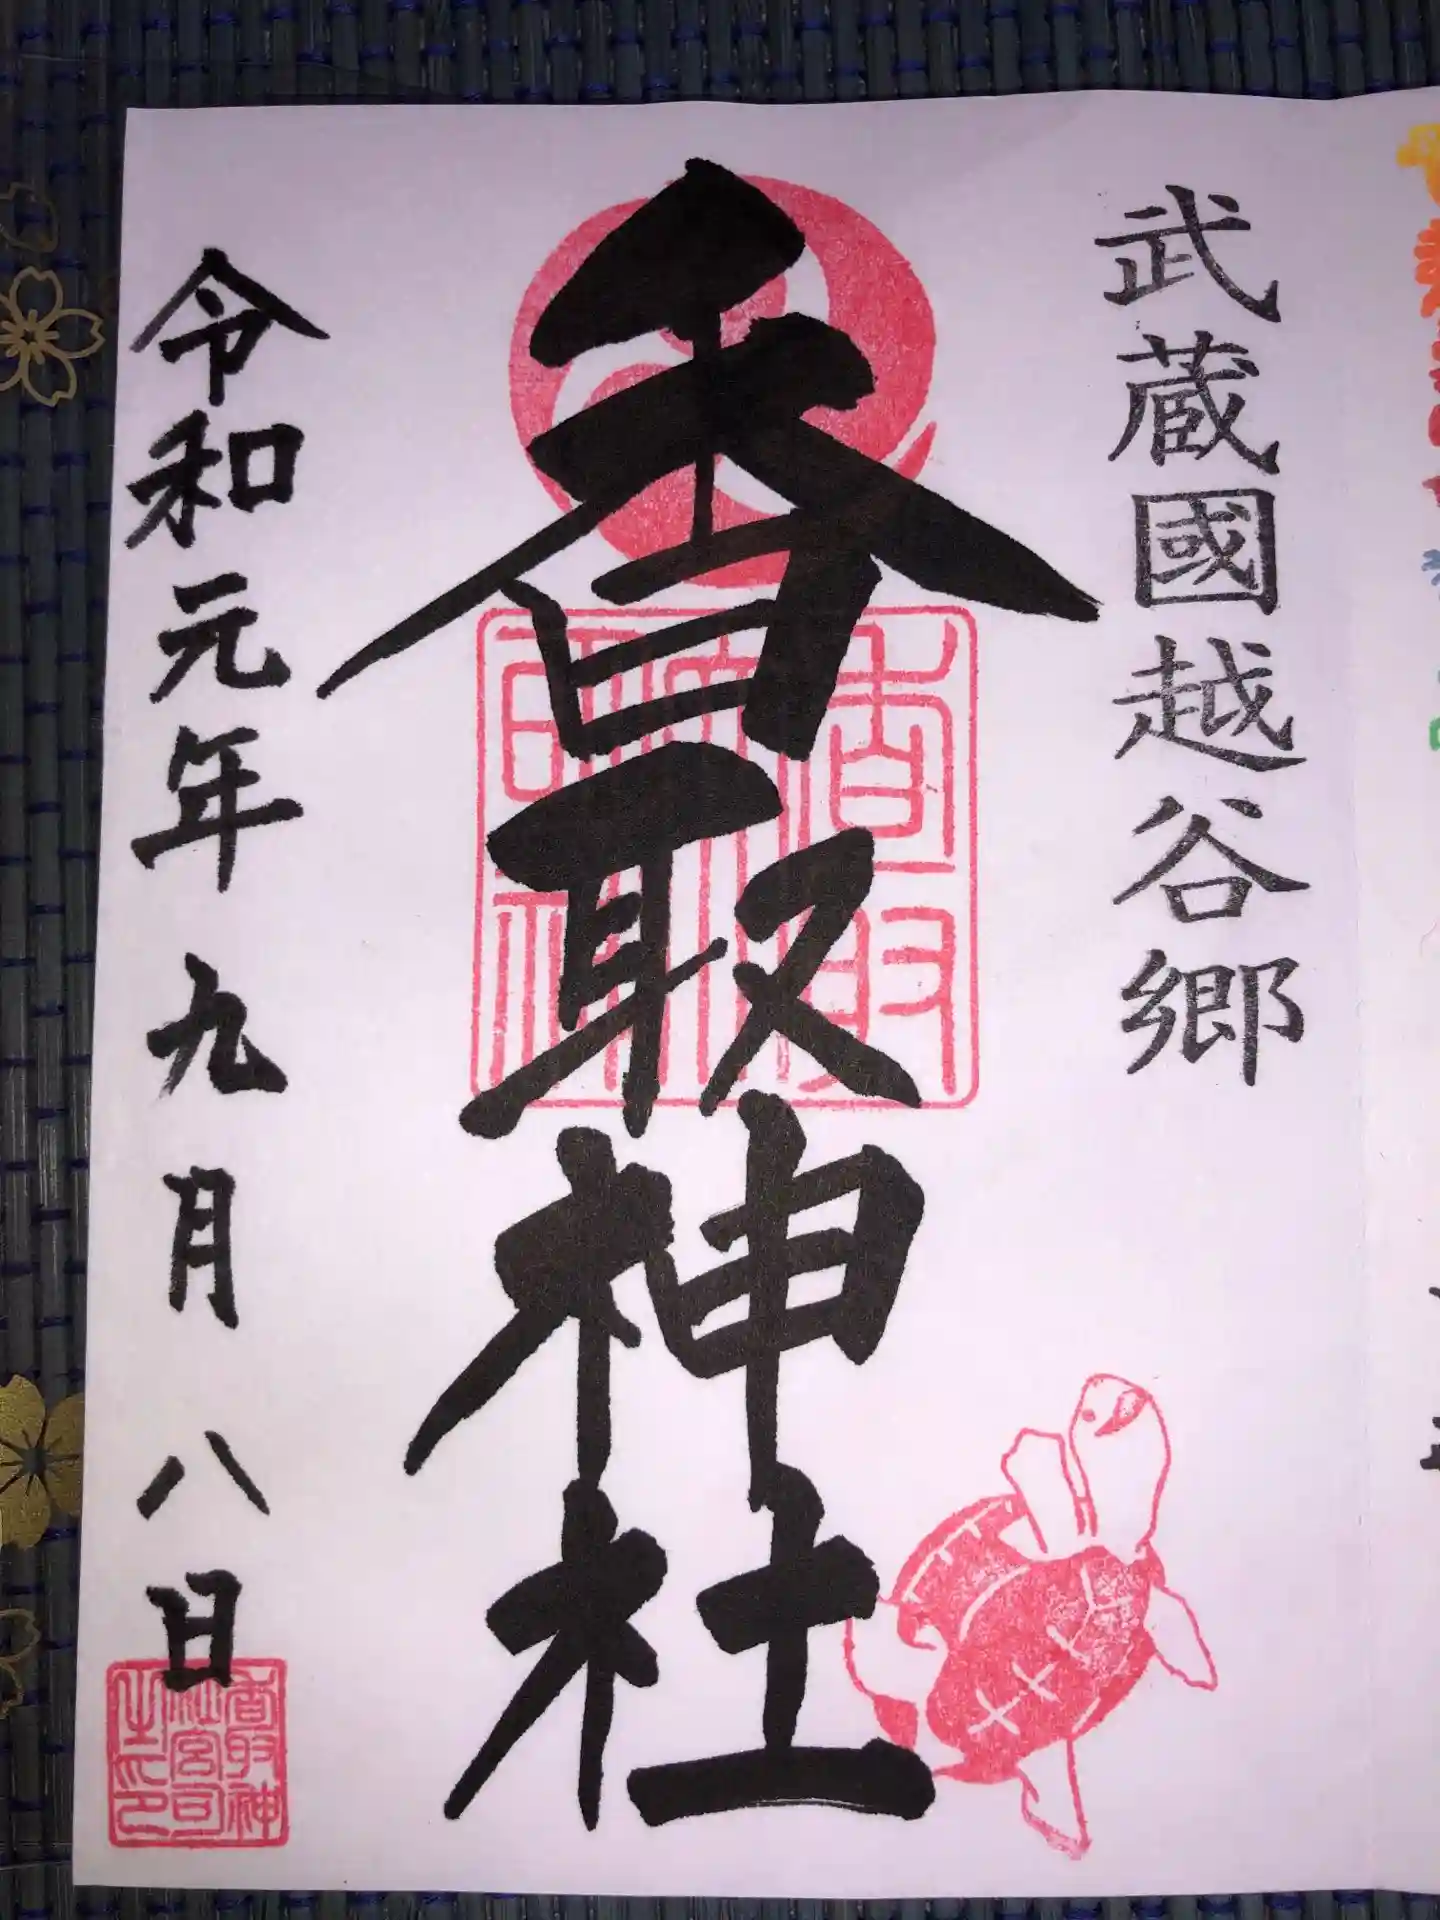 武蔵國越谷郷
香取神社
令和元年九月八日
香取神社宮司之印